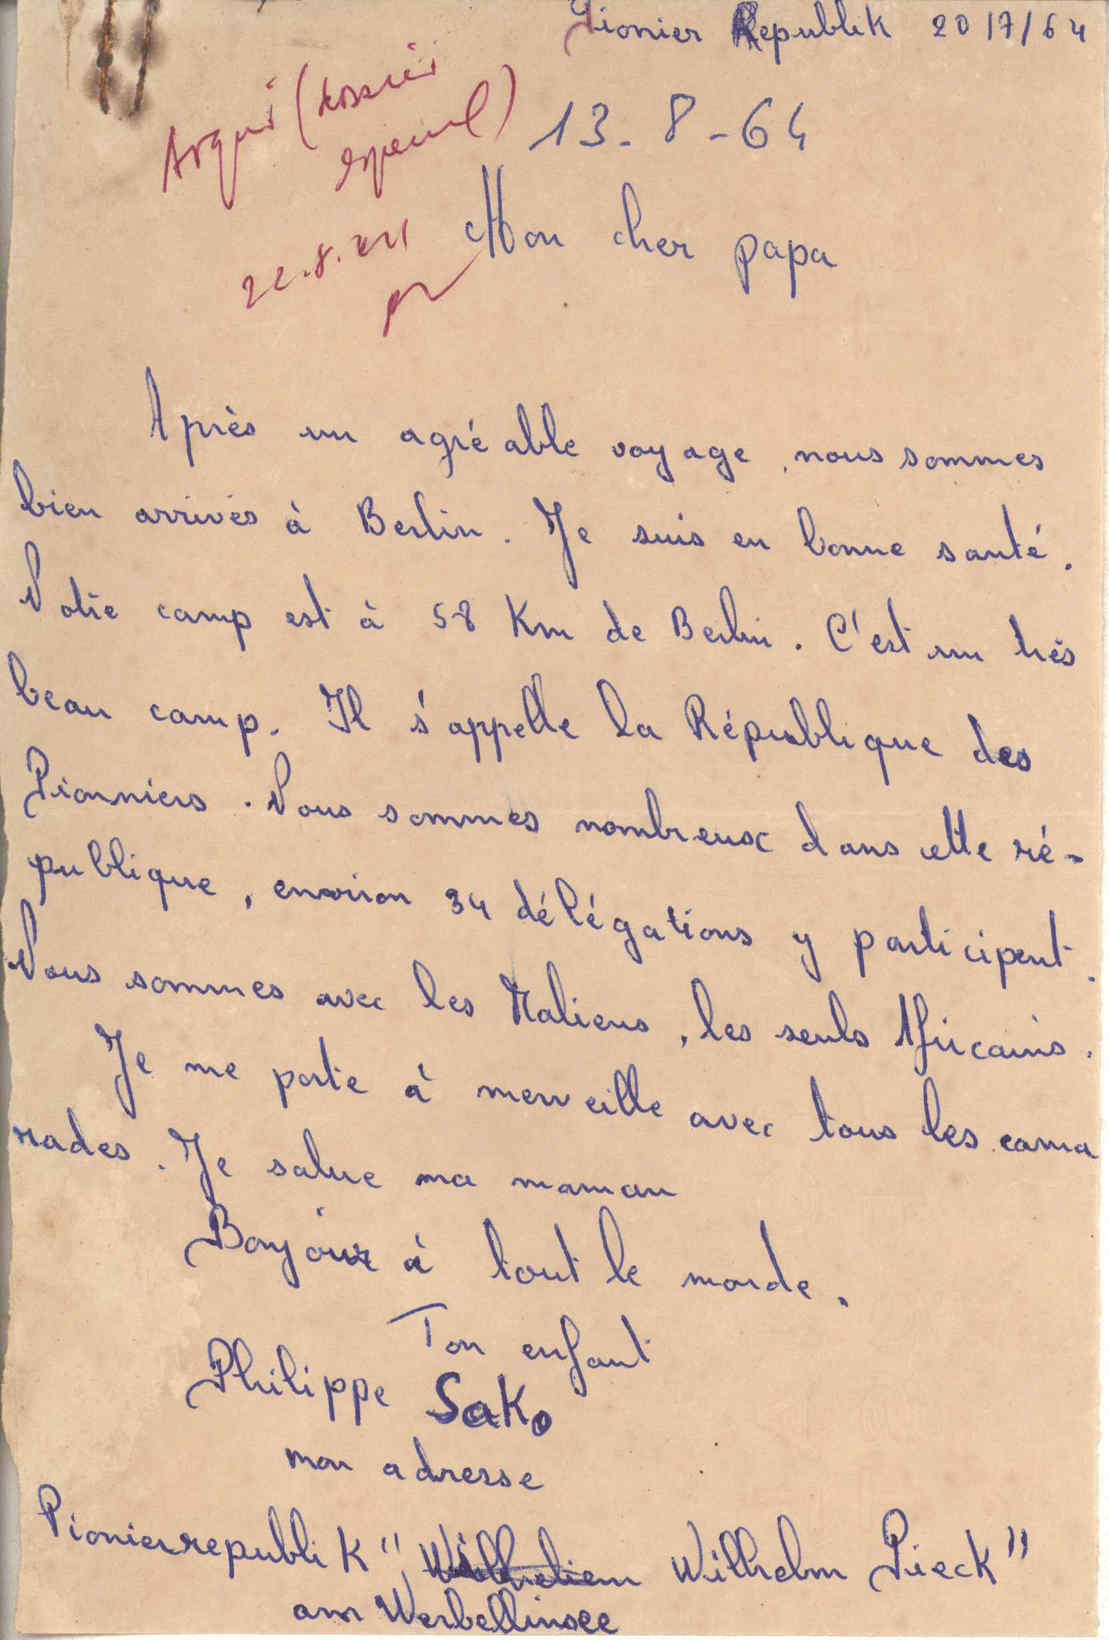 Pionier Republik 20/7/64
(dossier
special)
13-8-64
22.8.
Mon cher papa
Après un agréable voyage, nous sommes
bien arrivés à Berlin. Je suis en bonne santé.
Notre camp est à 58 Km de Berlin. C'est un très
beau camp. Il s'appelle la République des
Pionniers. Nous sommes nombreux dans cette ré-
publique, environ 34 délégations y participent.
Nous sommes avec les Maliens, les seuls Africains.
Je me porte à merveille avec tous les cama
rades. Je salue ma maman
Bonjour à tout le monde.
Ton enfant
Philippe Sako
mon adresse
Pionierrepublik "Wilhelm Pieck"
am Werbellinsee